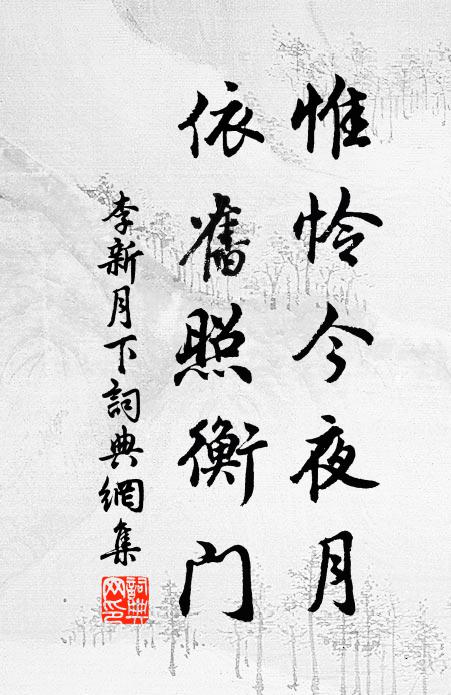 惟怜今夜月
依舊照衡門
李新月下詞典網集
詞典網印